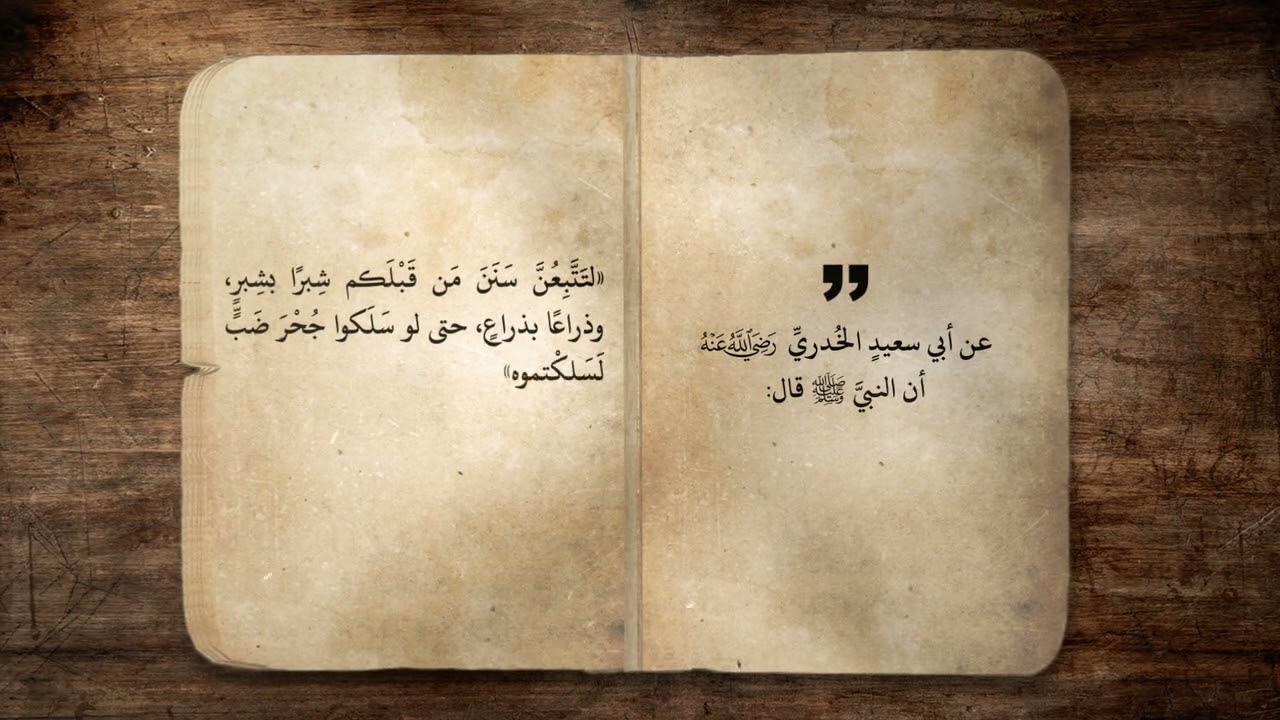 عن أبي سعيدٍ الخُدريِّ رَضِيَ اللَّهُ عَنْهُ
أن النبيَّ ﷺ قال:
«لتَتَّبِعُنَّ سَنَنَ مَن قَبْلَكم شِبرًا بشِبرٍ،
وذراعًا بذراعٍ، حتى لو سَلَكوا جُحْرَ ضَبٍّ
لَسَلكْتموه»